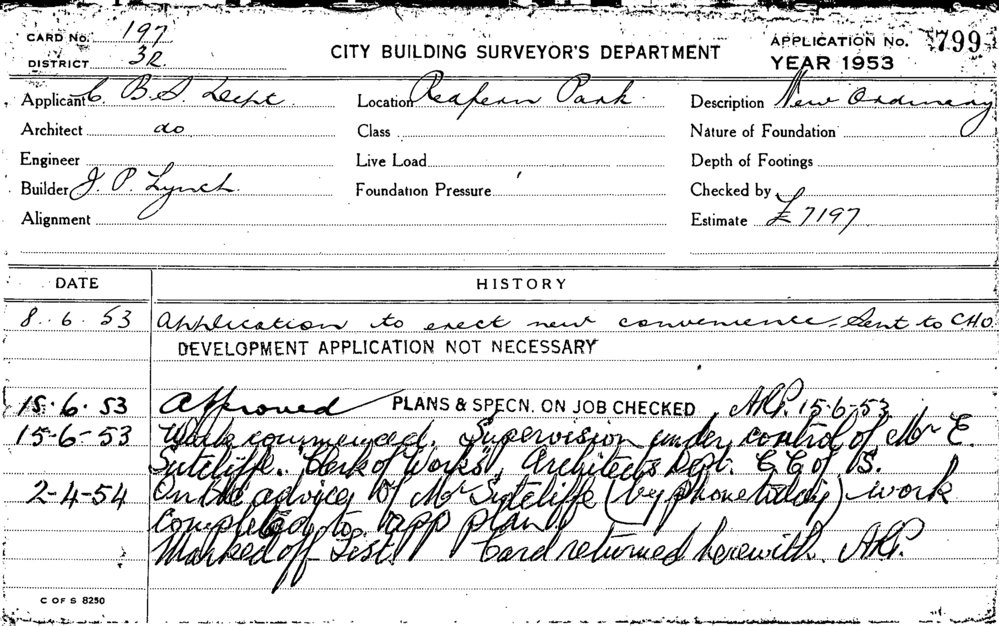 CARD No. 197
DISTRICT 32
CITY BUILDING SURVEYOR'S DEPARTMENT
APPLICATION No. 799
YEAR 1953
Applicant C. B. S. Dept.
Location Redfern Park.
Description New Ordinary
Architect do
Class
Nature of Foundation
Engineer
Live Load
Depth of Footings
Builder J. P. Lynch.
Foundation Pressure
Checked by
Alignment
Estimate £7197
DATE HISTORY
8. 6. 53 Application to erect new convenience. Sent to C.H.O.
DEVELOPMENT APPLICATION NOT NECESSARY
15. 6. 53 Approved PLANS & SPECN. ON JOB CHECKED 15-6-53
15-6-53 Work commenced. Supervision under control of Mr E.
Sutcliffe. "Clerk of Works", Architects Dept. C C of S.
2-4-54 On the advice of Mr Sutcliffe (by phone today) work
completed to app plan
Marked off List. Card returned herewith.
C OF S 8250